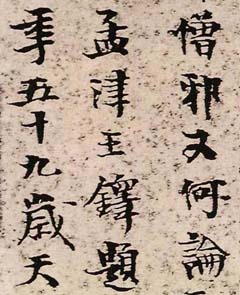 僧邪又何論
孟津王鐸題
年五十九歲天